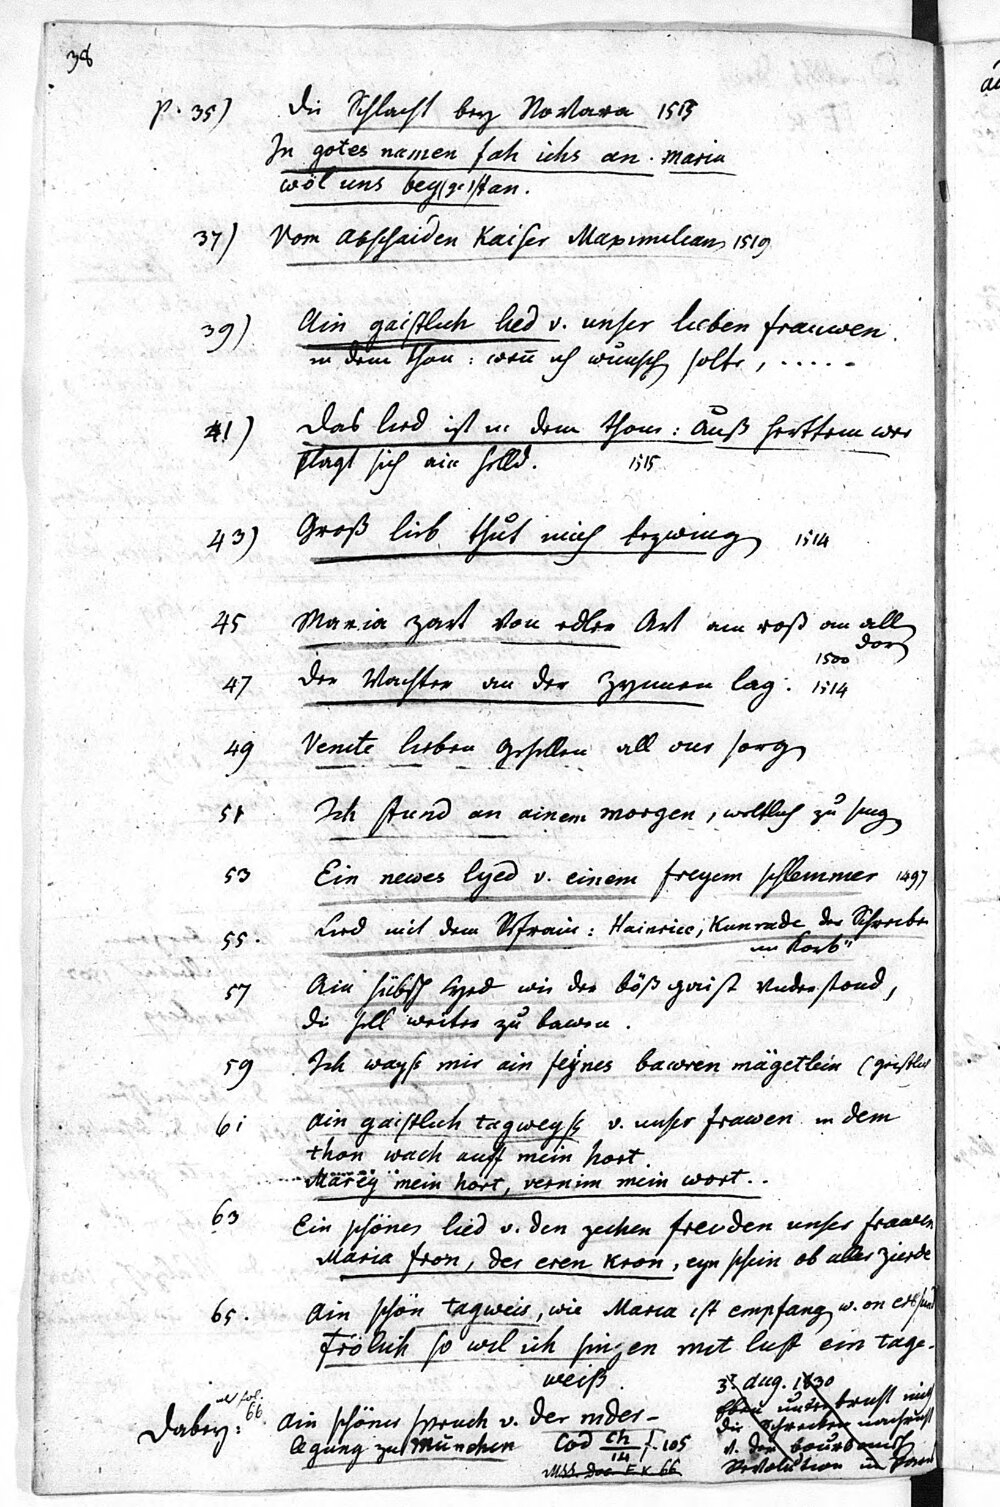 38
p. 35) Die Schlacht bey Novara 1513
In gotes namen fah ichs an. Maria
wöl uns bey(ge)stan.
37) Vom abschaiden Kaiser Maximilians 1519
39) Ain gaistlich lied v. unser lieben frauwen.
in dem thon: wenn ich wünsch solte, .....
41) Das lied ist in dem thon: Auß herttem wee
klagt sich ain helld. 1515
43) Groß lieb thůt mich bezwing 1514
45 Maria zart von edler Art ain roß on all
dorn
1500
47 Der Wachter an der Zynnen lag. 1514
49 Venite lieben gesellen all one sorg
51 Ich stund an ainem morgen, weltlich zů sing
53 Ein newes lyed v. einem freyem schlemmer 1497
55. Lied mit dem Refrain: Hainrice, Kunrade der Schreiber
im Korb"
57 Ain hübsch lyed wie der böß gaist understond,
die hell weiter zů bawen.
59 Ich wayß mir ain feynes bawren mägetlein (geistlich
61 ain gaistlich tagweyß v. unser frawen in dem
thon wach auff mein hort.
Marey mein hort, vernim mein wort..
63 Ein schönes lied v. den zechen freuden unser frawen
Maria fron, der eren kron, eyn schein ob aller zierde
65. Ain schön tagweis, wie Maria ist empfang w. on erbsünd
Frölich so wil ich singen mit lust ein tage-
weiß.
Dabey: fol. 66 Ain schöner spruch v. der nider-
legung zu München Cod ch/14 f. 105
MSS. Doc E K 66
31 Aug. 1830
Eben unterbricht mich
die Schreiben nachricht
v. der bourbonisch
Revolution in